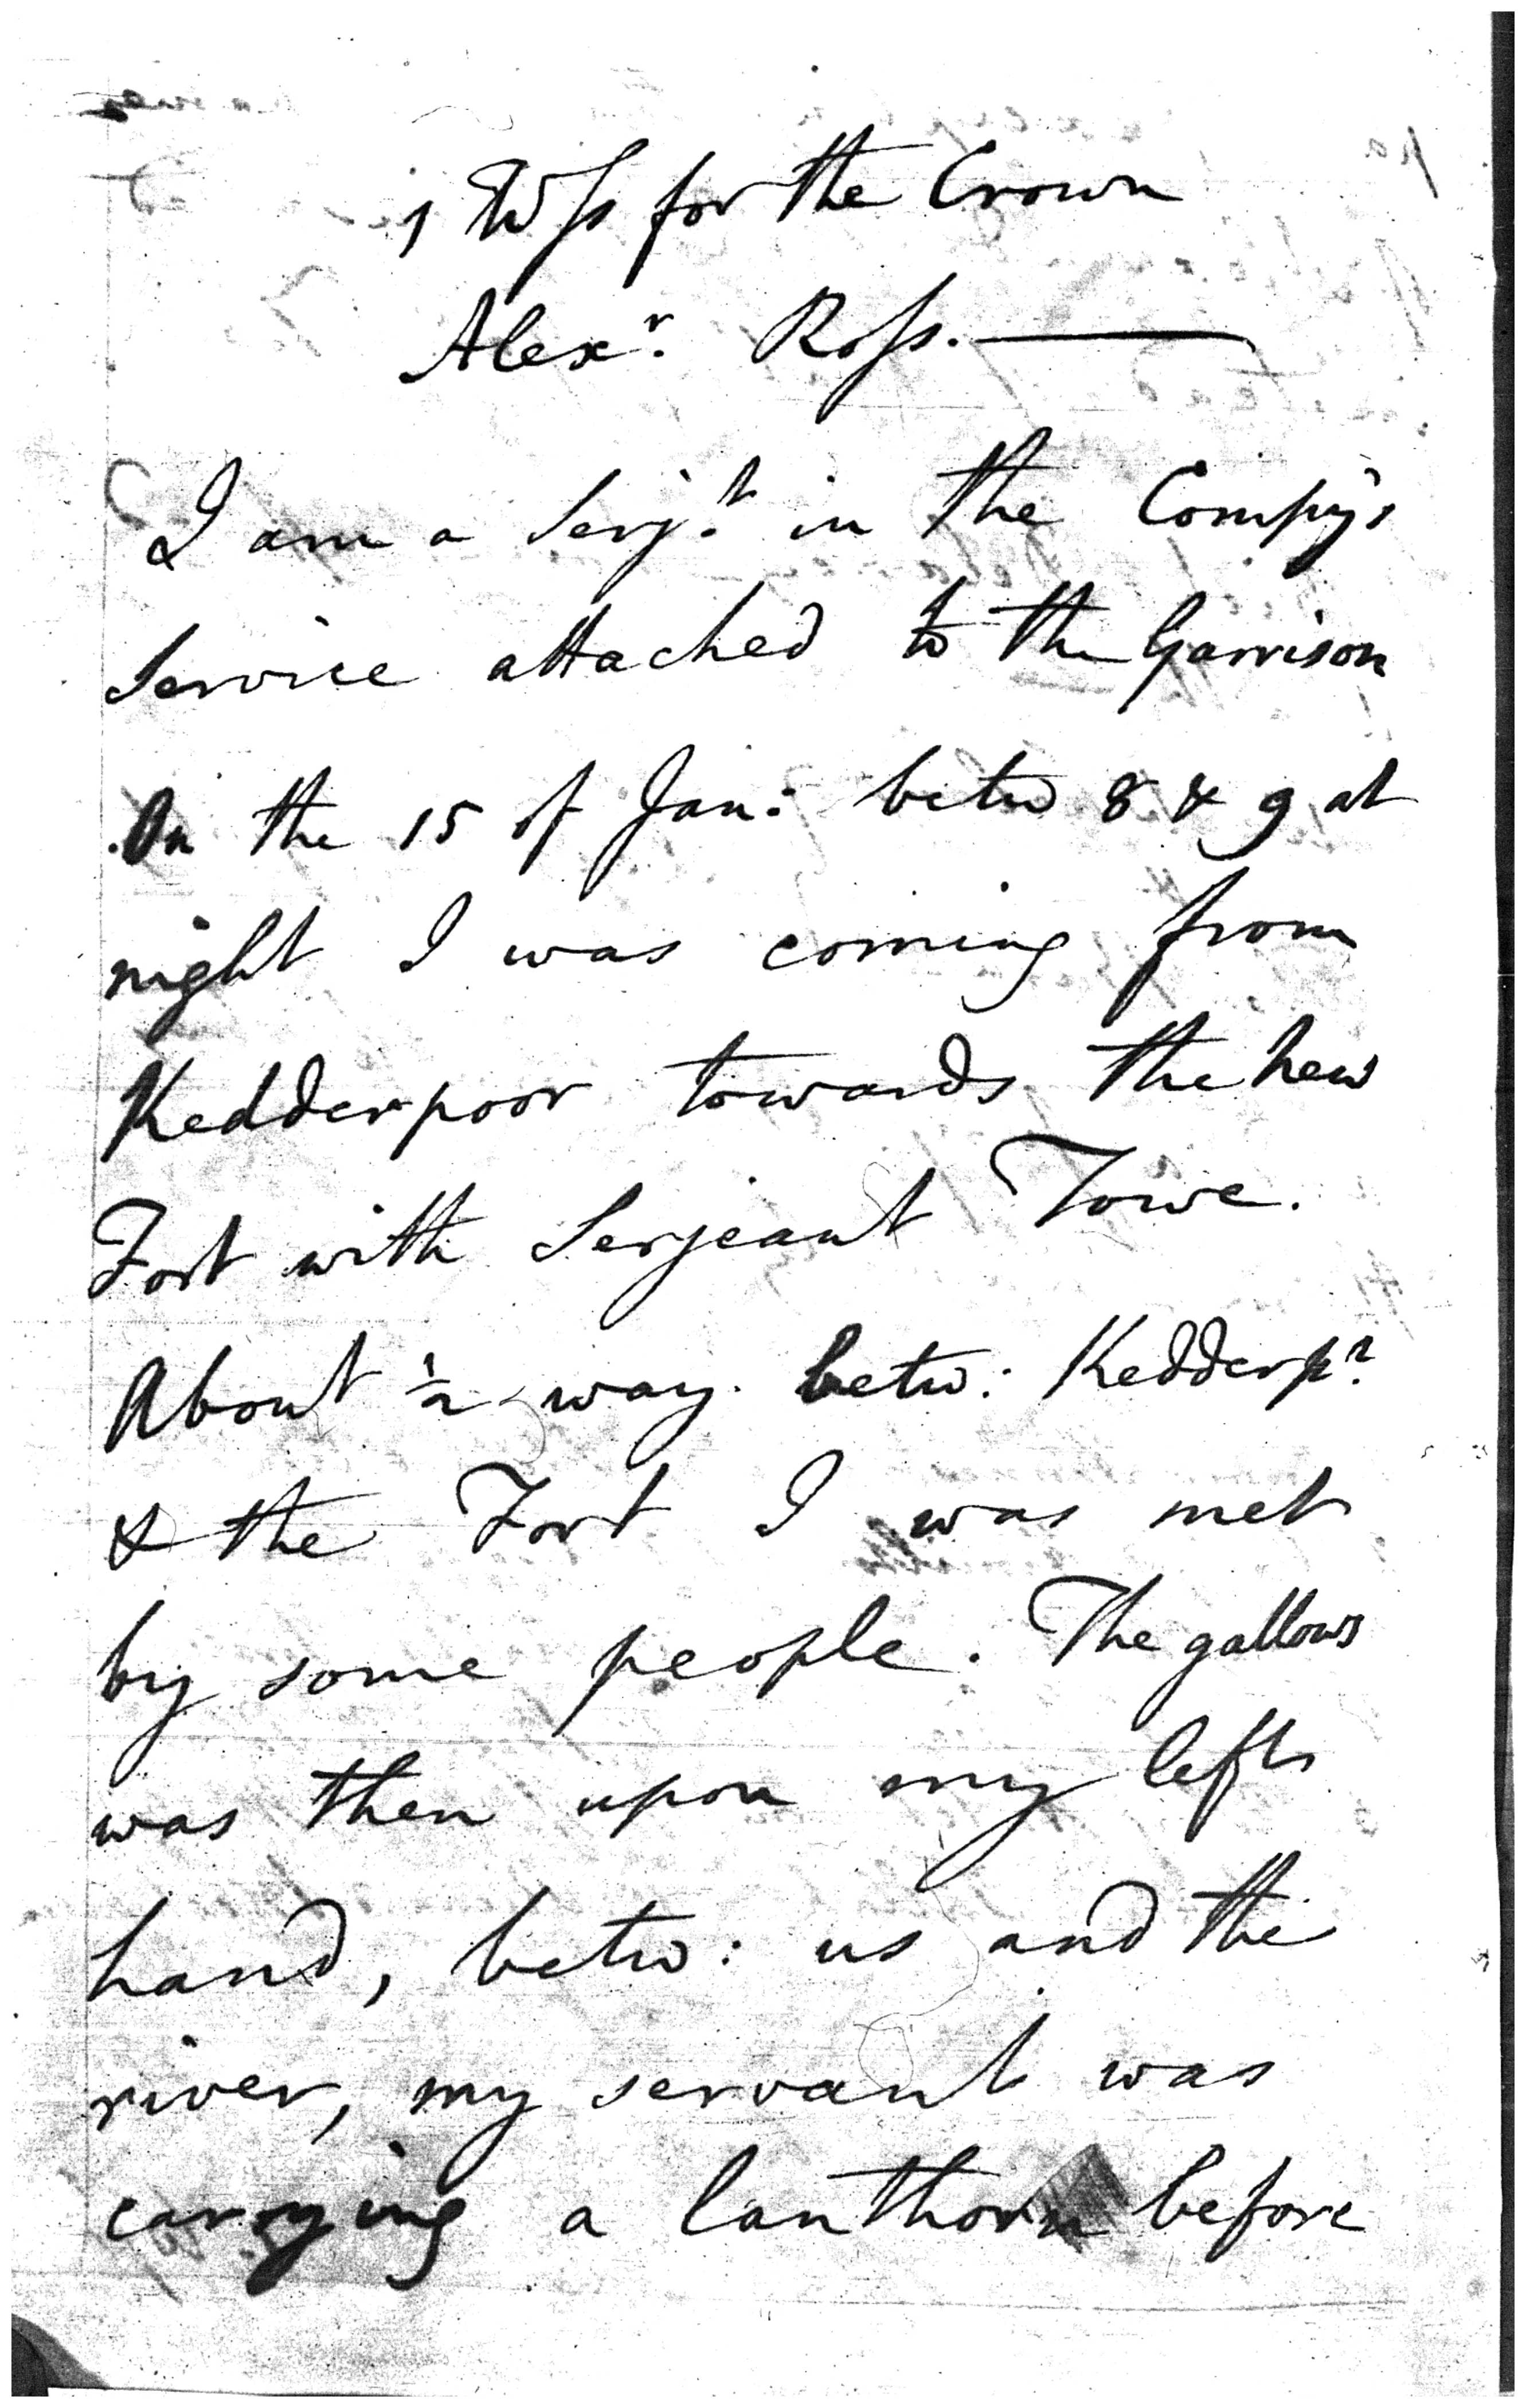 1 Wſs for the Crown
Alexr. Roſs. —
I am a Serjt. in the Compy's
Service attached to the Garrison
On the 15 of Jan: betw 8 & 9 at
night I was coming from
Kedderpoor towards the new
Fort with Serjeant Towe.
About ½ way betw: Kedderpr
& the Fort I was met
by some people. The gallows
was then upon my left
hand, betw: us and the
river, my servant was
carrying a lanthorn before